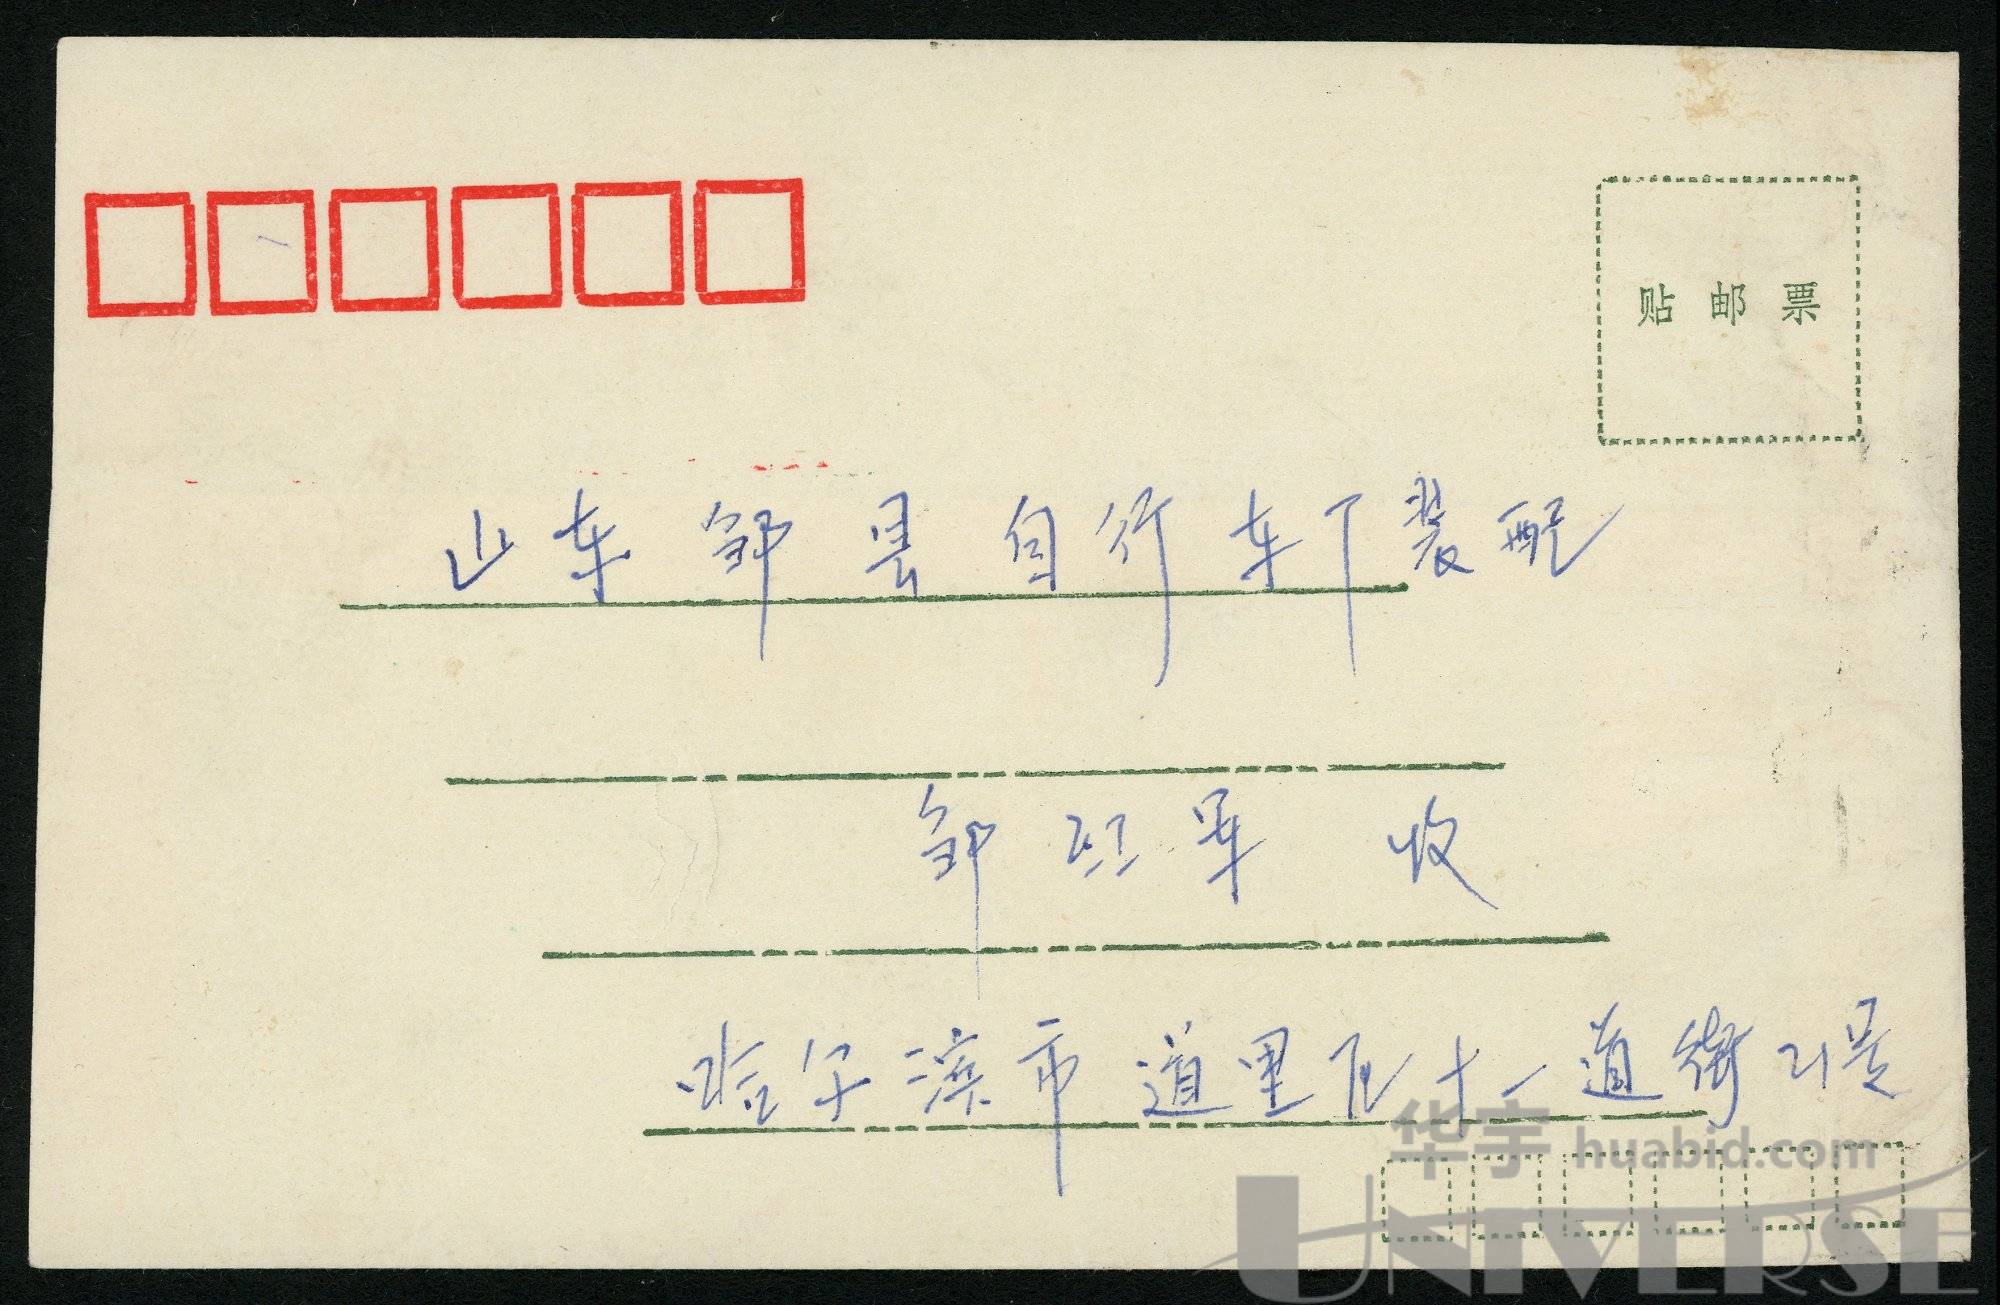 贴邮票
山东邹县自行车厂装配
邹红军 收
哈尔滨市道里区十一道街21号
华宇 huabid.com
UNIVERSE